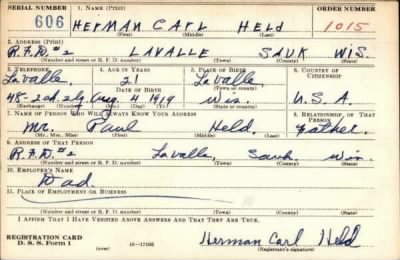 SERIAL NUMBER 1. NAME (Print) ORDER NUMBER
606 HERMAN CARL HELD 1015
(First) (Middle) (Last)
2. ADDRESS (Print)
R.F.D. #2 LAVALLE SAUK WIS.
(Number and street or R. F. D. number) (Town) (County) (State)
3. TELEPHONE 4. AGE IN YEARS 5. PLACE OF BIRTH 6. COUNTRY OF CITIZENSHIP
Lavalle 21 Lavalle
DATE OF BIRTH (Town or county)
48- Aug. 4 1919 Wis. U.S.A.
(Exchange) (Number) (Mo.) (Day) (Yr.) (State or country)
7. NAME OF PERSON WHO WILL ALWAYS KNOW YOUR ADDRESS 8. RELATIONSHIP OF THAT PERSON
Mr. Paul Held. Father.
(Mr., Mrs., Miss) (First) (Middle) (Last)
9. ADDRESS OF THAT PERSON
R.F.D. #2 Lavalle, Sauk Wis.
(Number and street or R. F. D. number) (Town) (County) (State)
10. EMPLOYER'S NAME
Dad.
11. PLACE OF EMPLOYMENT OR BUSINESS
(Number and street or R. F. D. number) (Town) (County) (State)
I AFFIRM THAT I HAVE VERIFIED ABOVE ANSWERS AND THAT THEY ARE TRUE.
REGISTRATION CARD
D. S. S. Form 1 (over) Herman Carl Held
(Registrant's signature)